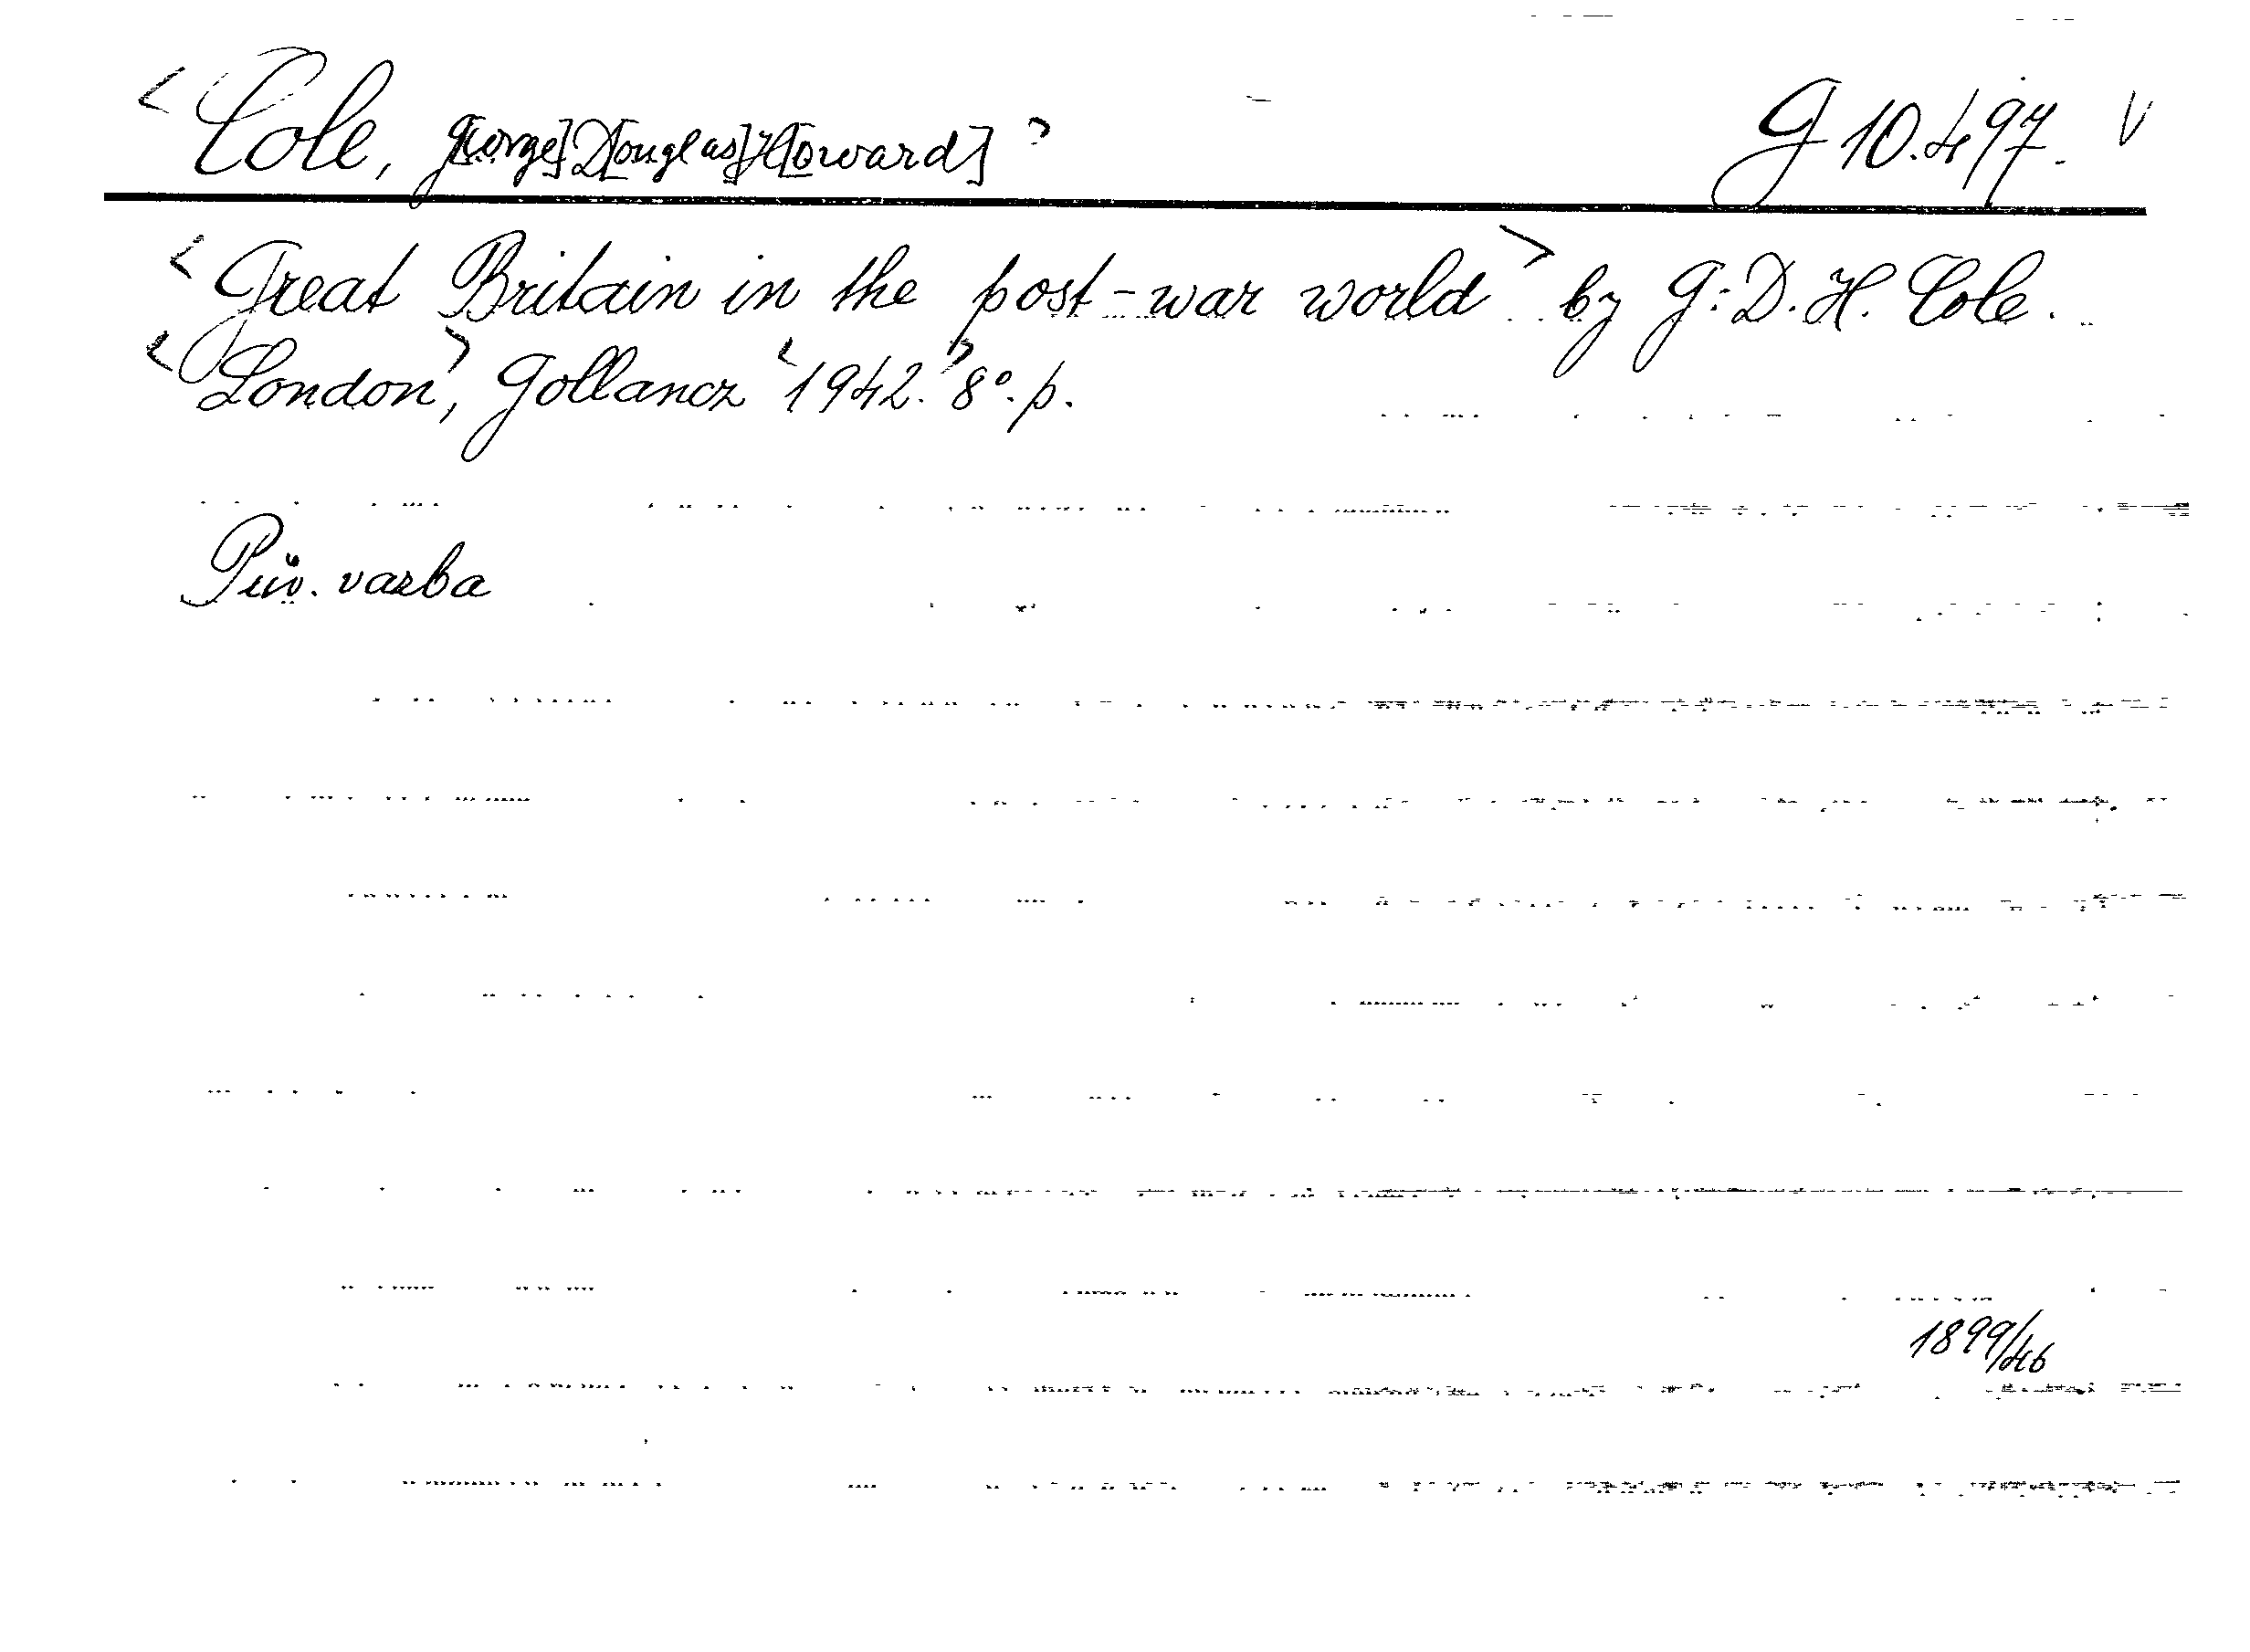 <Cole, G[eorge] D[ouglas] H[oward]> G 10.497. V
<Great Britain in the post-war world> by G. D. H. Cole.
<London>, Gollancz <1942.> 8°. p.
Pův. vazba
1899/46